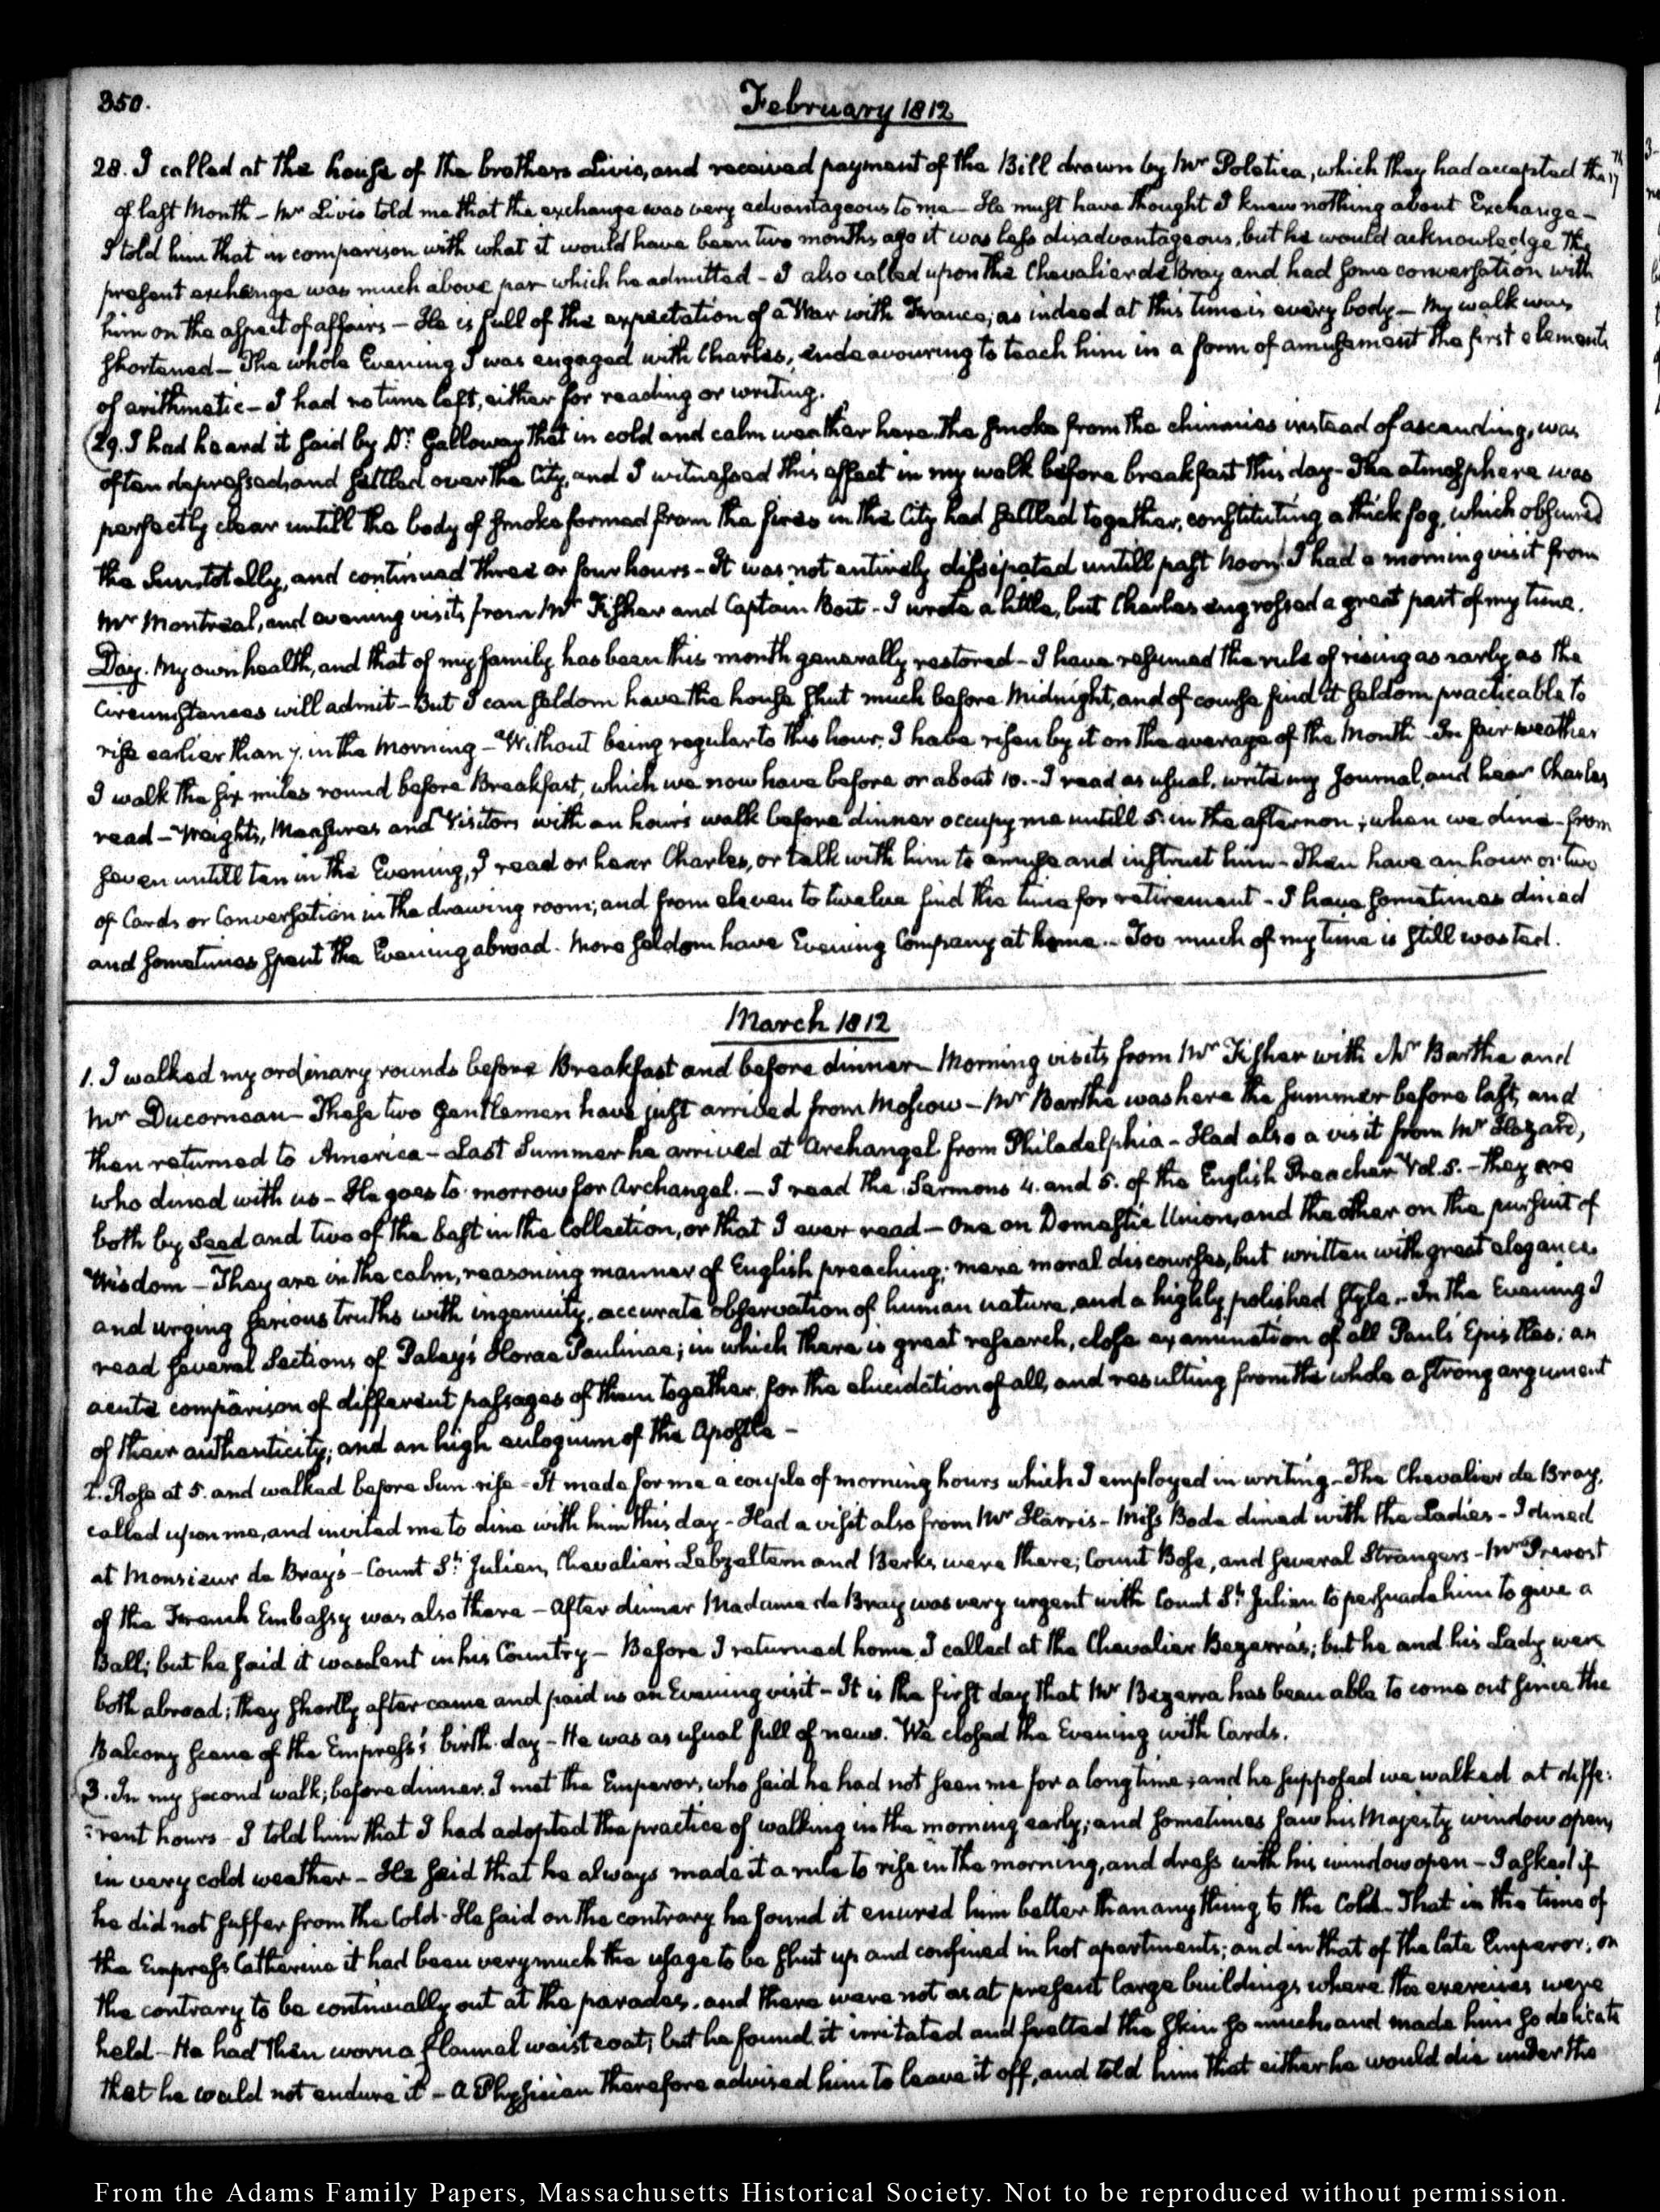 350.
February 1812
28. I called at the house of the brothers Livio, and received payment of the Bill drawn by Mr Poletica, which they had accepted the 17th
of last Month – Mr Livio told me that the exchange was very advantageous to me – He must have thought I knew nothing about Exchange –
I told him that in comparison with what it would have been two months ago it was less disadvantageous, but he would acknowledge the
present exchange was much above par which he admitted – I also called upon the Chevalier de Bray and had some conversation with
him on the aspect of affairs – He is full of the expectation of a War with France, as indeed at this time is every body – My walk was
shortened – The whole Evening I was engaged with Charles, endeavouring to teach him in a form of amusement the first elements
of arithmetic – I had no time left, either for reading or writing.
29. I had heard it said by Dr Galloway that in cold and calm weather here the smoke from the chimnies instead of ascending, was
often depressed, and settled over the City, and I witnessed this effect in my walk before breakfast this day – The atmosphere was
perfectly clear untill the body of smoke formed from the fires in the City had settled together, constituting a thick fog, which obscured
the Sun totally, and continued three or four hours – It was not entirely dissipated untill past Noon. I had a morning visit from
Mr Montréal, and evening visits from Mr Fisher and Captain Bates – I wrote a little, but Charles engrossed a great part of my time.
Day. My own health, and that of my family has been this month generally restored – I have resumed the rule of rising as early as the
Circumstances will admit – But I can seldom have the house shut much before Midnight, and of course find it seldom practicable to
rise earlier than 7. in the Morning – Without being regular to this hour, I have risen by it on the average of the Month – In fair weather
I walk the six miles round before Breakfast, which we now have before or about 10. – I read as usual, write my Journal, and hear Charles
read – Weights, Measures and Visitors with an hour's walk before dinner occupy me untill 5. in the afternoon, when we dine – from
seven untill ten in the Evening, I read or hear Charles, or talk with him to amuse and instruct him – Then have an hour or two
of Cards or Conversation in the drawing room; and from eleven to twelve find the time for retirement – I have sometimes dined
and sometimes spent the Evening abroad. More seldom have Evening Company at home – Too much of my time is still wasted.
March 1812
1. I walked my ordinary rounds before Breakfast and before dinner – Morning visits from Mr Fisher with Mr Barthe and
Mr Ducorneau – These two Gentlemen have just arrived from Moscow – Mr Barthe was here the Summer before last, and
then returned to America – Last Summer he arrived at Archangel from Philadelphia – Had also a visit from Mr Hazard,
who dined with us – He goes to-morrow for Archangel. – I read the Sermons 4. and 5. of the English Preacher Vol. 5. – They are
both by Seed and two of the best in the Collection, or that I ever read – One on Domestic Union, and the other on the pursuit of
Wisdom – They are in the calm, reasoning manner of English preaching; mere moral discourses, but written with great elegance
and urging serious truths with ingenuity, accurate observation of human nature, and a highly polished style – In the Evening I
read several Sections of Paley's Horae Paulinae; in which there is great research, close examination of all Paul's Epistles; an
acute comparison of different passages of them together, for the elucidation of all, and resulting from the whole a strong argument
of their authenticity; and an high eulogium of the Apostle –
2. Rose at 5. and walked before Sun-rise – It made for me a couple of morning hours which I employed in writing – The Chevalier de Bray,
called upon me, and invited me to dine with him this day – Had a visit also from Mr Harris – Miss Bode dined with the Ladies – I dined
at Monsieur de Bray's – Count St Julien, Chevaliers Lebzeltern and Berks were there; Count Bose, and several Strangers – Mr Prevost
of the French Embassy was also there – After dinner Madame de Bray was very urgent with Count St Julien to persuade him to give a
Ball; but he said it was lent in his Country – Before I returned home I called at the Chevalier Bezerra's; but he and his Lady were
both abroad; they shortly after came and paid us an Evening visit – It is the first day that Mr Bezerra has been able to come out since the
Balcony scene of the Empress's birth-day – He was as usual full of news. We closed the Evening with Cards.
3. In my second walk, before dinner, I met the Emperor, who said he had not seen me for a long time; and he supposed we walked at diffe-
:rent hours – I told him that I had adopted the practice of walking in the morning early; and sometimes saw his Majesty window open,
in very cold weather – He said that he always made it a rule to rise in the morning, and dress with his window open – I asked if
he did not suffer from the Cold – He said on the contrary he found it enured him better than any thing to the Cold – That in the time of
the Empress Catherine it had been very much the usage to be shut up and confined in hot apartments; and in that of the late Emperor, on
the contrary to be continually out at the parades. and there were not as at present large buildings where the exercises were
held – He had then worn a flannel waistcoat, but he found it irritated and fretted the skin so much, and made him so delicate
that he could not endure it – A Physician therefore advised him to leave it off, and told him that either he would die under the
From the Adams Family Papers, Massachusetts Historical Society. Not to be reproduced without permission.